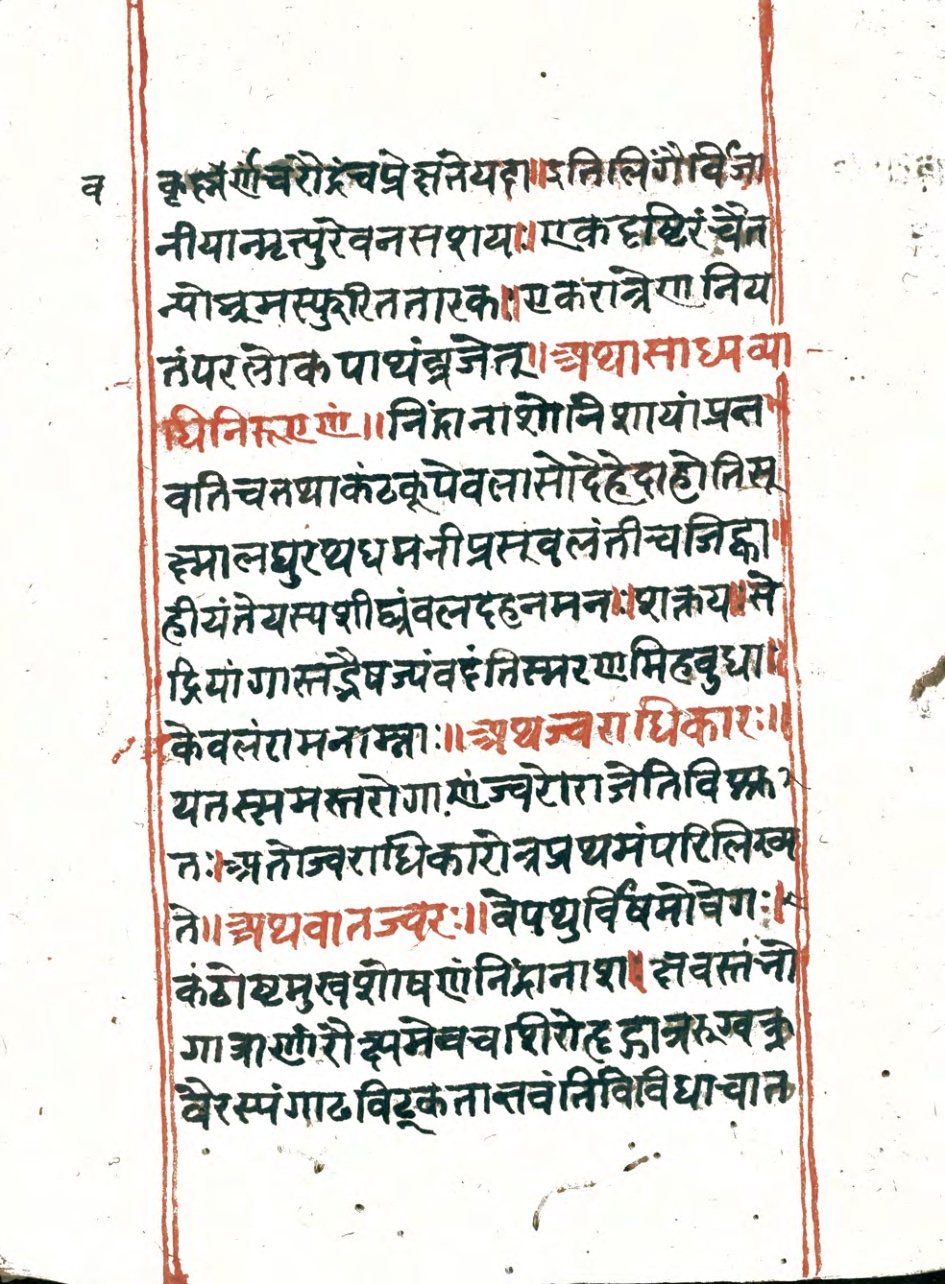 व
कृष्नर्णचरौद्रंचप्रेक्षतेयदा॥इतिलिंगैर्विजा
नीयान्मृत्युरेवनसशयः॥एकदृष्टिरंचैत
न्योभ्रमस्फुरिततारक॥एकरात्रेणनिय
तंपरलोकपाथंव्रजेत्॥अथासाध्यव्या
धिनिरूपणं॥निंद्रानाशोनिशायांप्रत्त
वतिचतथाकंठकूपेवलासोदेहेदाहोतिसू
क्ष्मालघुरथधमनीप्रस्वलंतीचजिह्वा
हीयंतेयस्यशीघ्रंवलदहनमनः॥शक्तय॥से
द्रियांगास्तद्भैषज्यंवदंतिस्मरणमिहवुधा॥
केवलंरामनाम्नाः॥अथज्वराधिकारः॥
यतस्समस्तरोगाणंज्वरोराजेतिविश्रु
तः॥अतोज्वराधिकारोत्रप्रथमंपरिलिख्य
ते॥अथवातज्वरः॥वेपथुर्विषमोवेगः॥
कंठोष्टमुखशोषणंनिंद्रानाश॥क्षवस्तंभो
गात्राणांरौक्ष्यमेवचशिरोहृद्गात्ररुग्वक्त्र
वैरस्यंगाढविट्कतात्तवंतिविविधावात